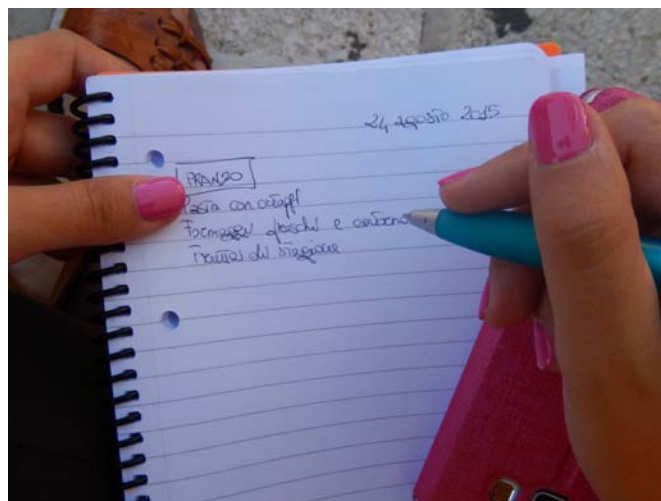 24 agosto 2015
PRANZO
Pasta con
Formaggi freschi e contorno
Frutta di stagione